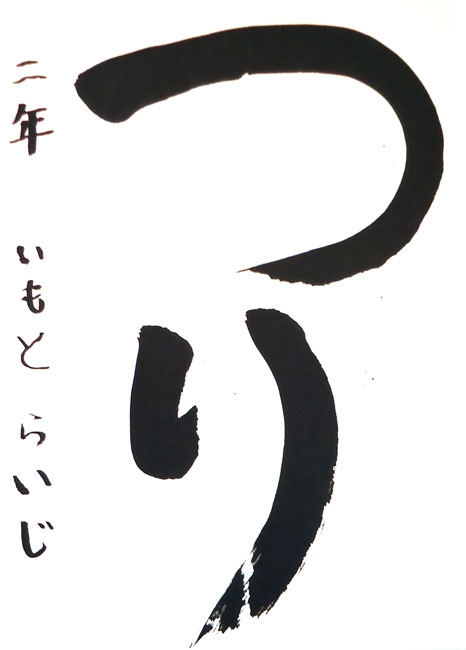 つり
二年 いもと らいじ